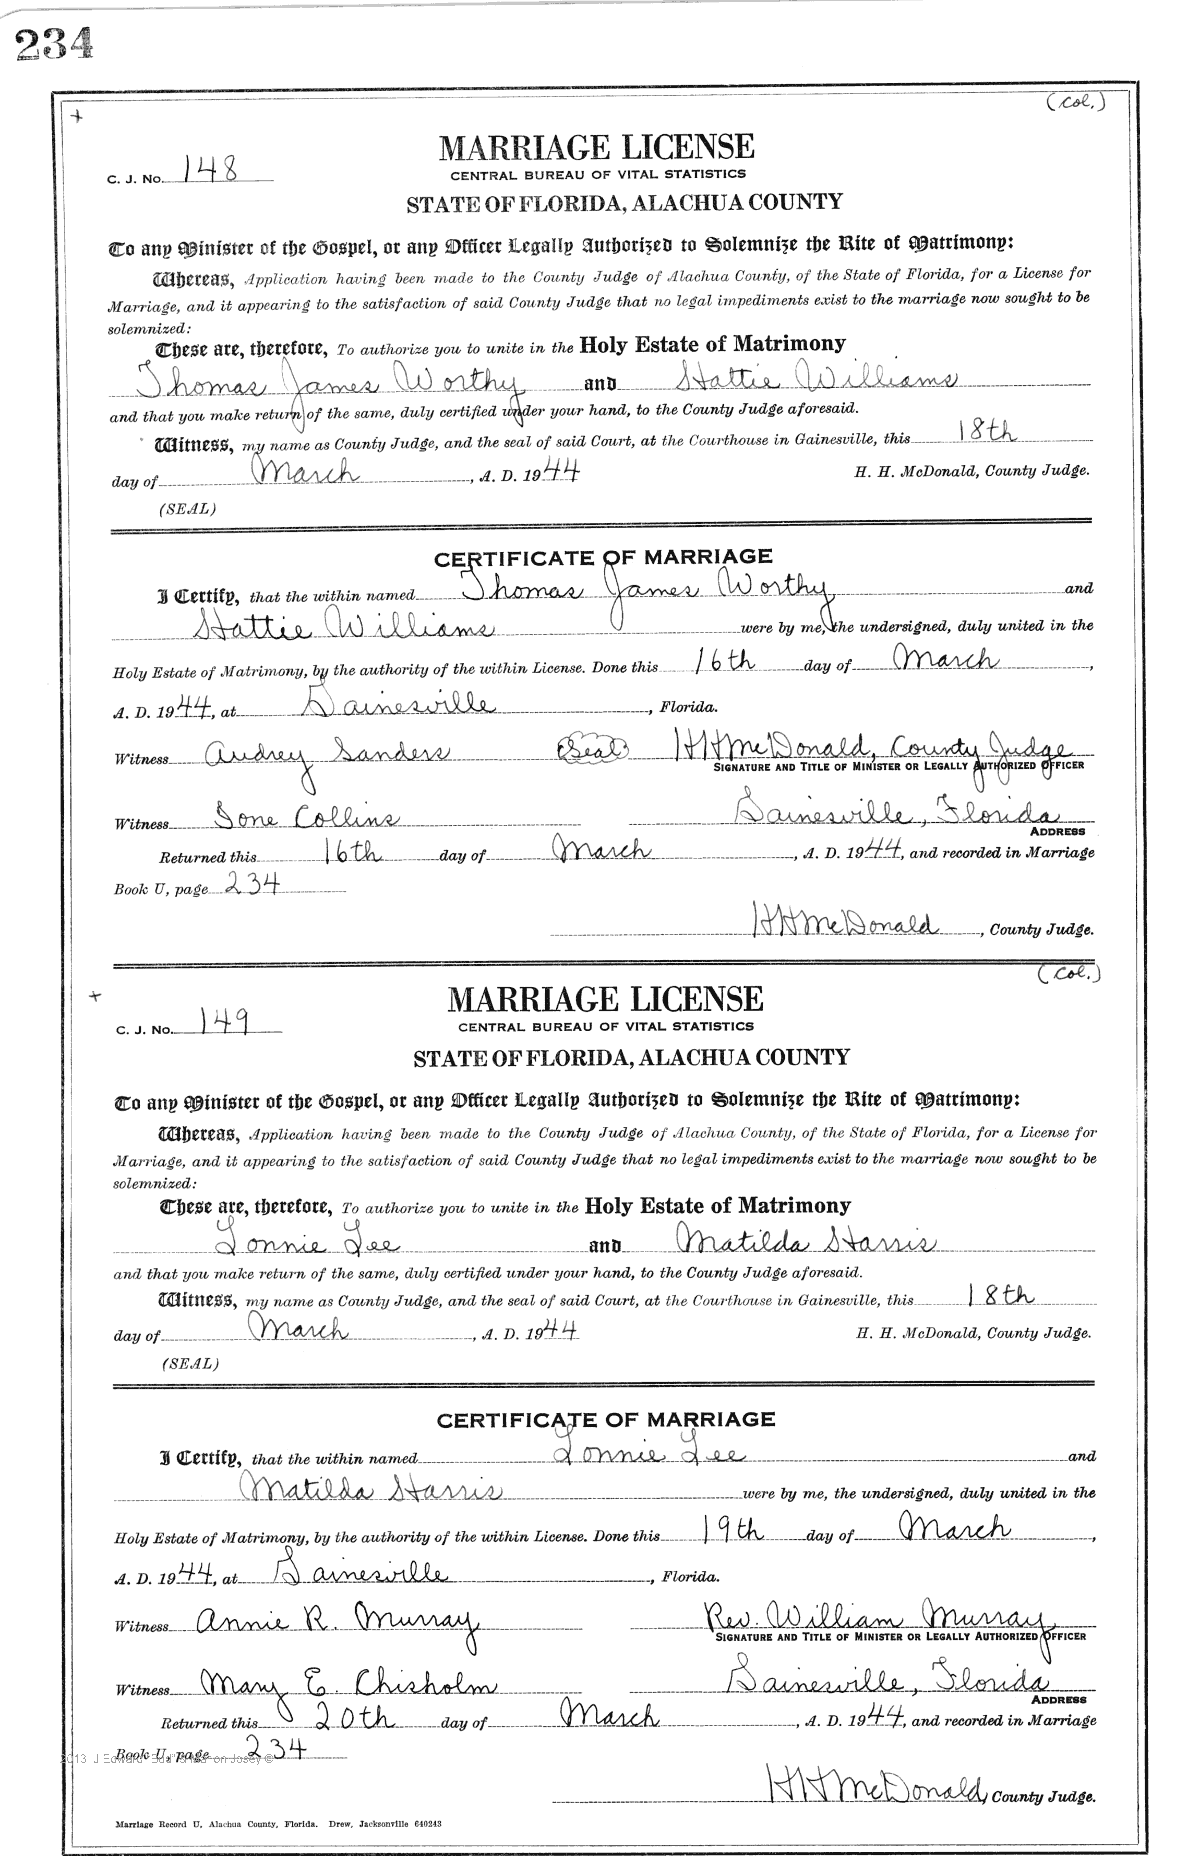 234
(col.)
+
MARRIAGE LICENSE
C. J. No. 148
CENTRAL BUREAU OF VITAL STATISTICS
STATE OF FLORIDA, ALACHUA COUNTY
To any Minister of the Gospel, or any Officer Legally Authorized to Solemnize the Rite of Matrimony:
Whereas, Application having been made to the County Judge of Alachua County, of the State of Florida, for a License for
Marriage, and it appearing to the satisfaction of said County Judge that no legal impediments exist to the marriage now sought to be
solemnized:
These are, therefore, To authorize you to unite in the Holy Estate of Matrimony
Thomas James Worthy and Hattie Williams
and that you make return of the same, duly certified under your hand, to the County Judge aforesaid.
Witness, my name as County Judge, and the seal of said Court, at the Courthouse in Gainesville, this 18th
day of March, A. D. 1944 H. H. McDonald, County Judge.
(SEAL)
CERTIFICATE OF MARRIAGE
I Certify, that the within named Thomas James Worthy and
Hattie Williams were by me, the undersigned, duly united in the
Holy Estate of Matrimony, by the authority of the within License. Done this 16th day of March,
A. D. 1944, at Gainesville, Florida.
Witness Audrey Sanders (Seal) HHMcDonald, County Judge
SIGNATURE AND TITLE OF MINISTER OR LEGALLY AUTHORIZED OFFICER
Witness Ione Collins Gainesville, Florida
ADDRESS
Returned this 16th day of March, A. D. 1944, and recorded in Marriage
Book U, page 234
HHMcDonald, County Judge.
(col.)
+
MARRIAGE LICENSE
C. J. No. 149
CENTRAL BUREAU OF VITAL STATISTICS
STATE OF FLORIDA, ALACHUA COUNTY
To any Minister of the Gospel, or any Officer Legally Authorized to Solemnize the Rite of Matrimony:
Whereas, Application having been made to the County Judge of Alachua County, of the State of Florida, for a License for
Marriage, and it appearing to the satisfaction of said County Judge that no legal impediments exist to the marriage now sought to be
solemnized:
These are, therefore, To authorize you to unite in the Holy Estate of Matrimony
Lonnie Lee and Matilda Harris
and that you make return of the same, duly certified under your hand, to the County Judge aforesaid.
Witness, my name as County Judge, and the seal of said Court, at the Courthouse in Gainesville, this 18th
day of March, A. D. 1944 H. H. McDonald, County Judge.
(SEAL)
CERTIFICATE OF MARRIAGE
I Certify, that the within named Lonnie Lee and
Matilda Harris were by me, the undersigned, duly united in the
Holy Estate of Matrimony, by the authority of the within License. Done this 19th day of March,
A. D. 1944, at Gainesville, Florida.
Witness Annie R. Murray Rev. William Murray
SIGNATURE AND TITLE OF MINISTER OR LEGALLY AUTHORIZED OFFICER
Witness Mary E. Chisholm Gainesville, Florida
ADDRESS
Returned this 20th day of March, A. D. 1944, and recorded in Marriage
Book U, page 234
2013 J Edward
HHMcDonald, County Judge.
Marriage Record U, Alachua County, Florida. Drew, Jacksonville 640243